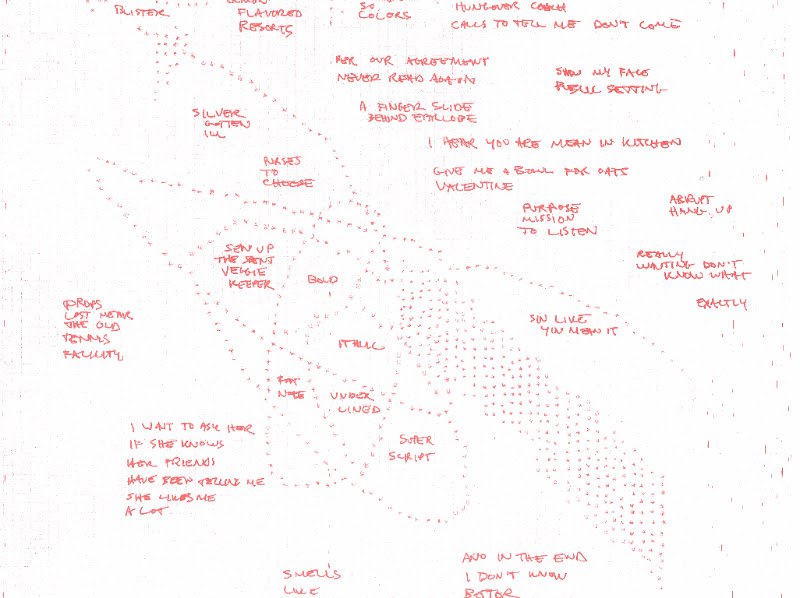 BLISTER
FLAVORED
RESORTS
SO
COLORS
HUNGOVER COACH
CALLS TO TELL ME DON'T COME
PER OUR AGREEMENT
NEVER READ AGAIN
SHOW MY FACE
SETTING
A FINGER SLIDE
BEHIND ENVELOPE
SILVER
GOTTEN
ILL
I HEAR YOU ARE MEAN IN KITCHEN
NOSES
TO
CHOOSE
GIVE ME A BOWL FOR OATS
VALENTINE
PURPOSE
MISSION
TO LISTEN
ABRUPT
HANG UP
SEW UP
THE SENT
VEGGIE
KEEPER
BOLD
REALLY
WAITING DON'T
KNOW WHAT
EXACTLY
PROPS
LAST NEAR
THE OLD
TENNIS
FACILITY
SIN LIKE
YOU MEAN IT
ITALIC
FOOT
NOTE
UNDER
LINED
SUPER
SCRIPT
I WANT TO ASK HER
IF SHE KNOWS
HER FRIENDS
HAVE BEEN TELLING ME
SHE LIKES ME
A LOT
SMELLS
LIKE
AND IN THE END
I DON'T KNOW
BETTER